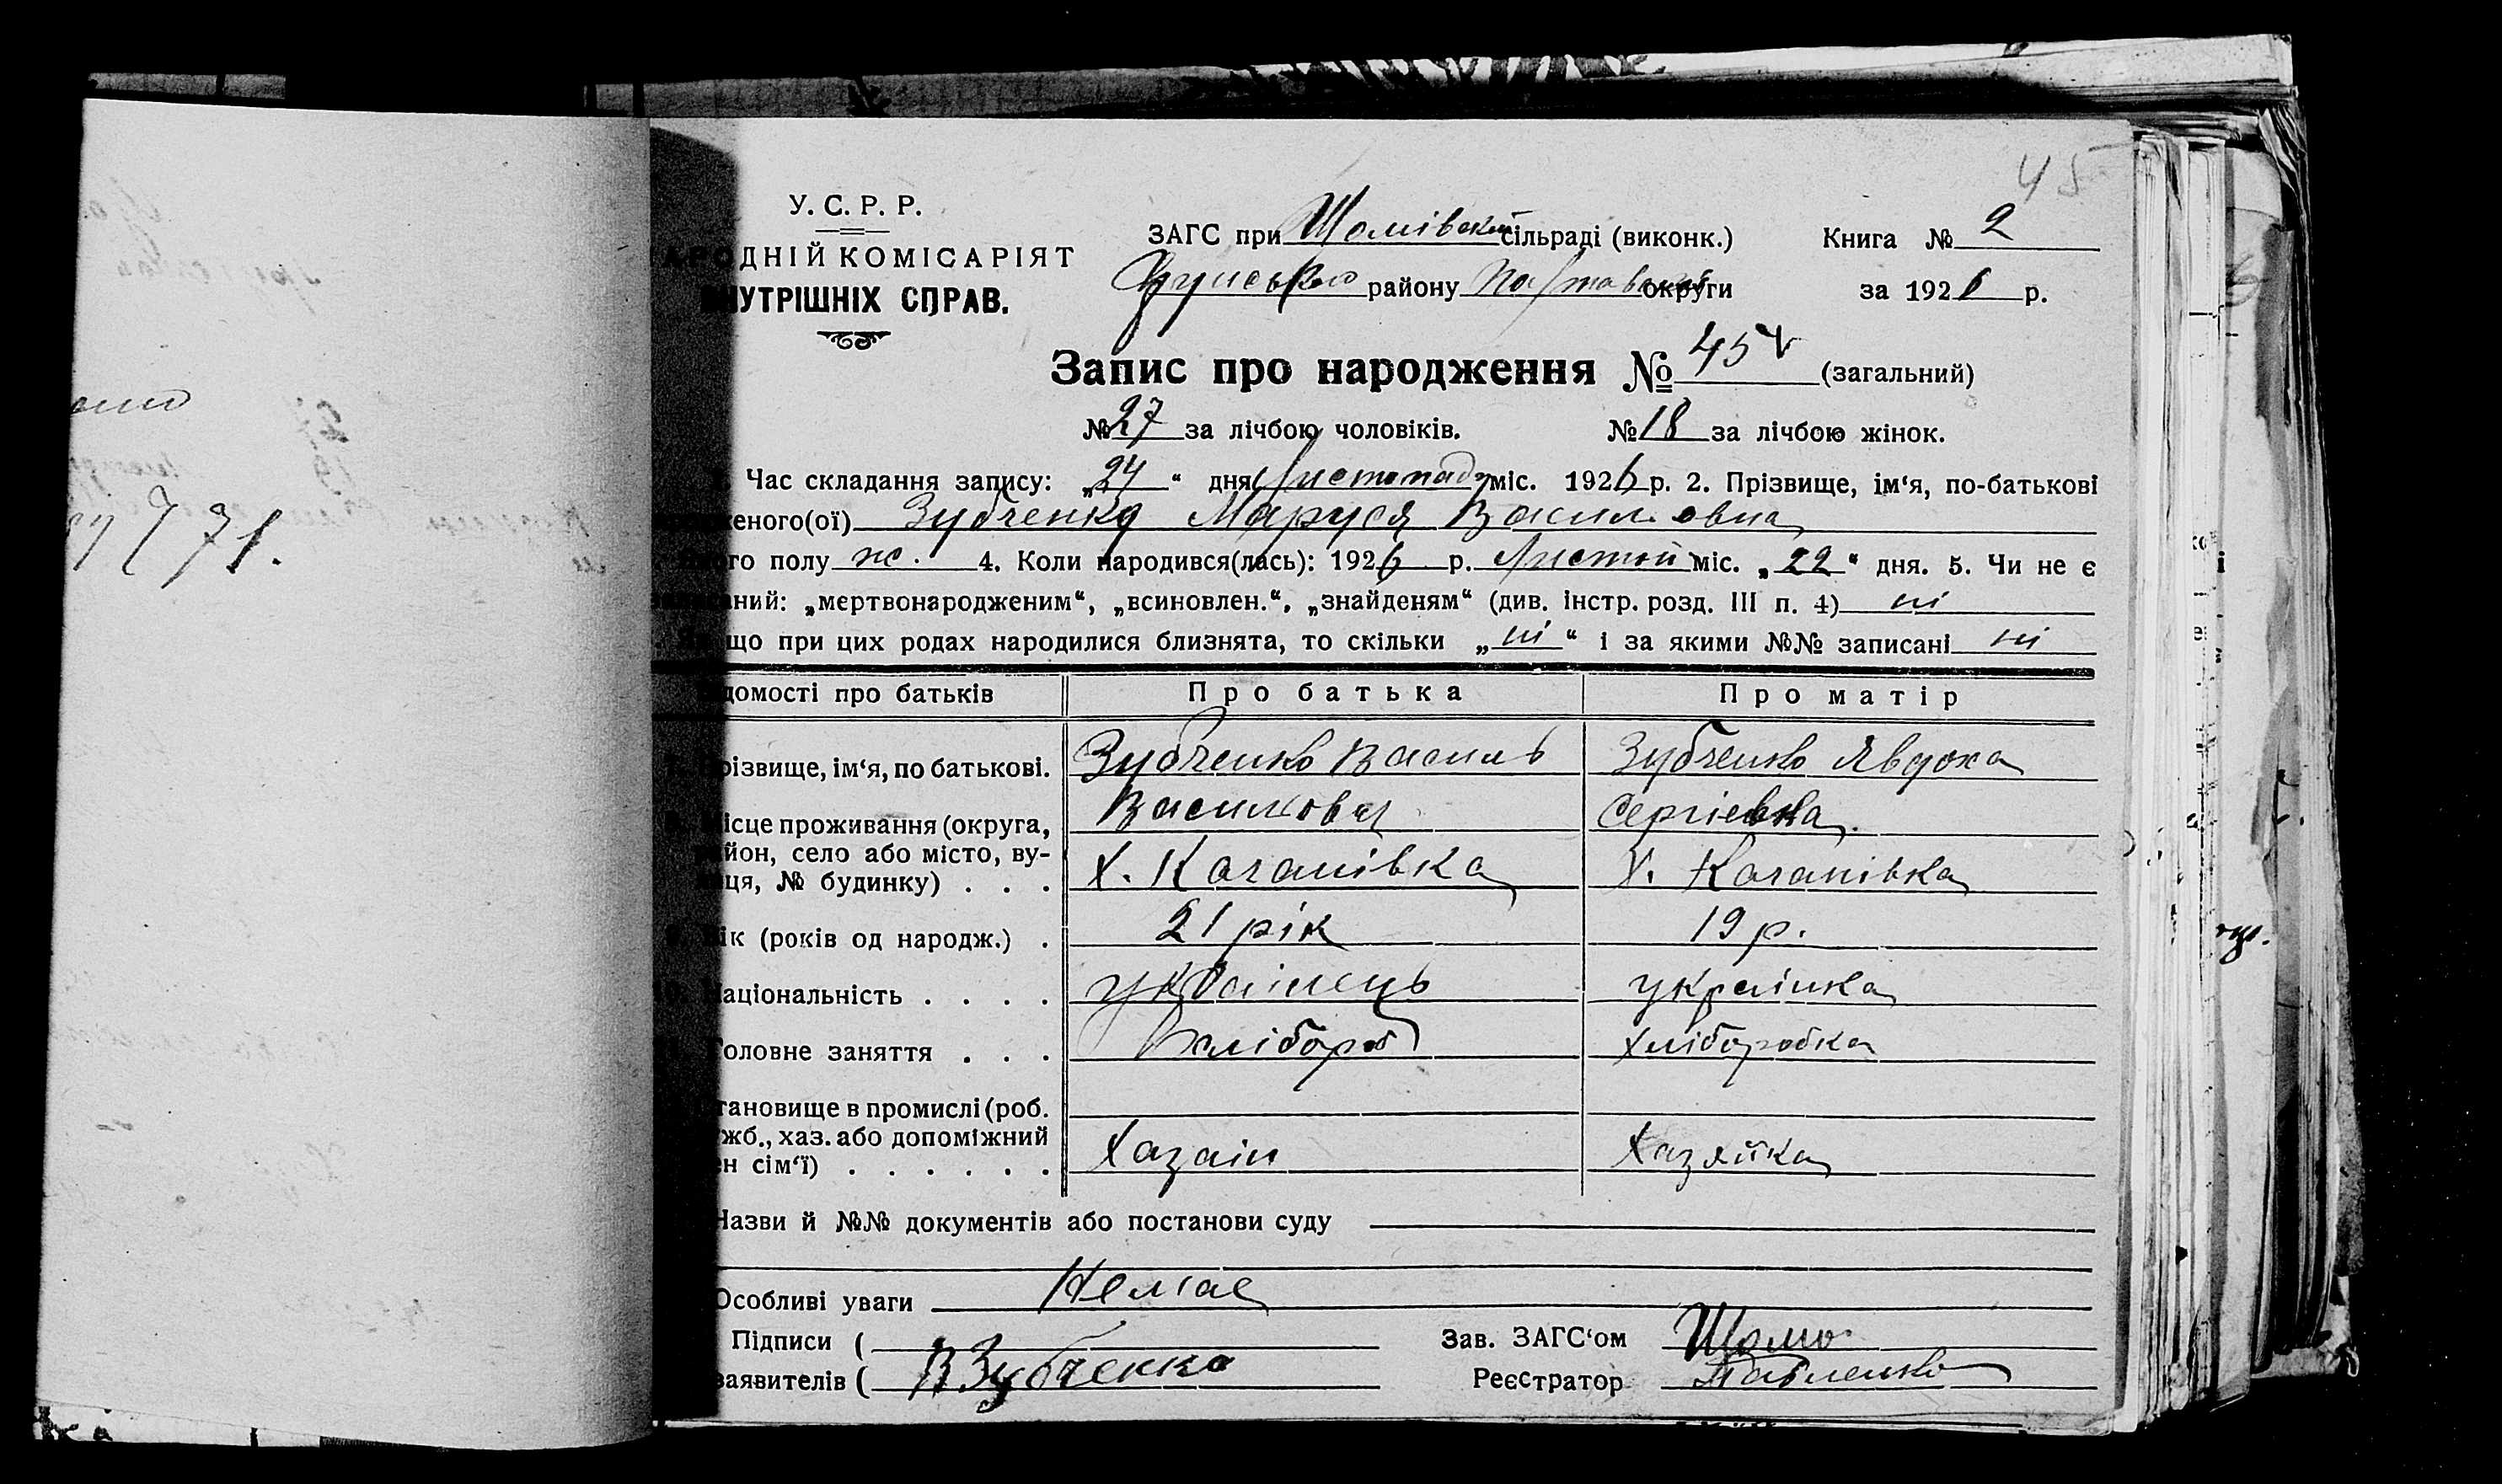 45
У. С. Р. Р.
АРОДНІЙ КОМІСАРІЯТ
НУТРІШНІХ СПРАВ.
ЗАГС при Шомівській сільраді (виконк.)
району Полтавської округи
Книга № 2
за 1926 р.
Запис про народження № 45 (загальний)
№ 27 за лічбою чоловіків. № 18 за лічбою жінок.
Час складання запису: „24“ дня Листопаду міс. 1926 р. 2. Прізвище, ім‘я, по-батькові
еного(ої) Зубченко Маруся Василовна
го полу ж. 4. Коли народився(лась): 1926 р. Листоп міс. „22“ дня. 5. Чи не є
ний: „мертвонародженим“, „всиновлен.“, „знайденям“ (див. інстр. розд. III п. 4) ні
що при цих родах народилися близнята, то скільки „ні“ і за якими №№ записані ні
домості про батьків Про батька Про матір
різвище, ім‘я, по батькові. Зубченко Василь Зубченко Явдоха
Васильович Сергіевна.
ісце проживання (округа,
йон, село або місто, ву-
ця, № будинку) . . . Х. Качанівка Х. Качанівка
ік (років од народж.) . 21 рік 19 р.
аціональність . . . . українець українка
оловне заняття . . . хлібороб хліборобка
тановище в промислі (роб.
жб., хаз. або допоміжний
ен сім‘ї) . . . . . . Хазаін Хазяйка
Назви й №№ документів або постанови суду
Особливі уваги Немає
Підписи (
заявителів ( В Зубченко
Зав. ЗАГС‘ом Шомо
Реєстратор Павленко
771.